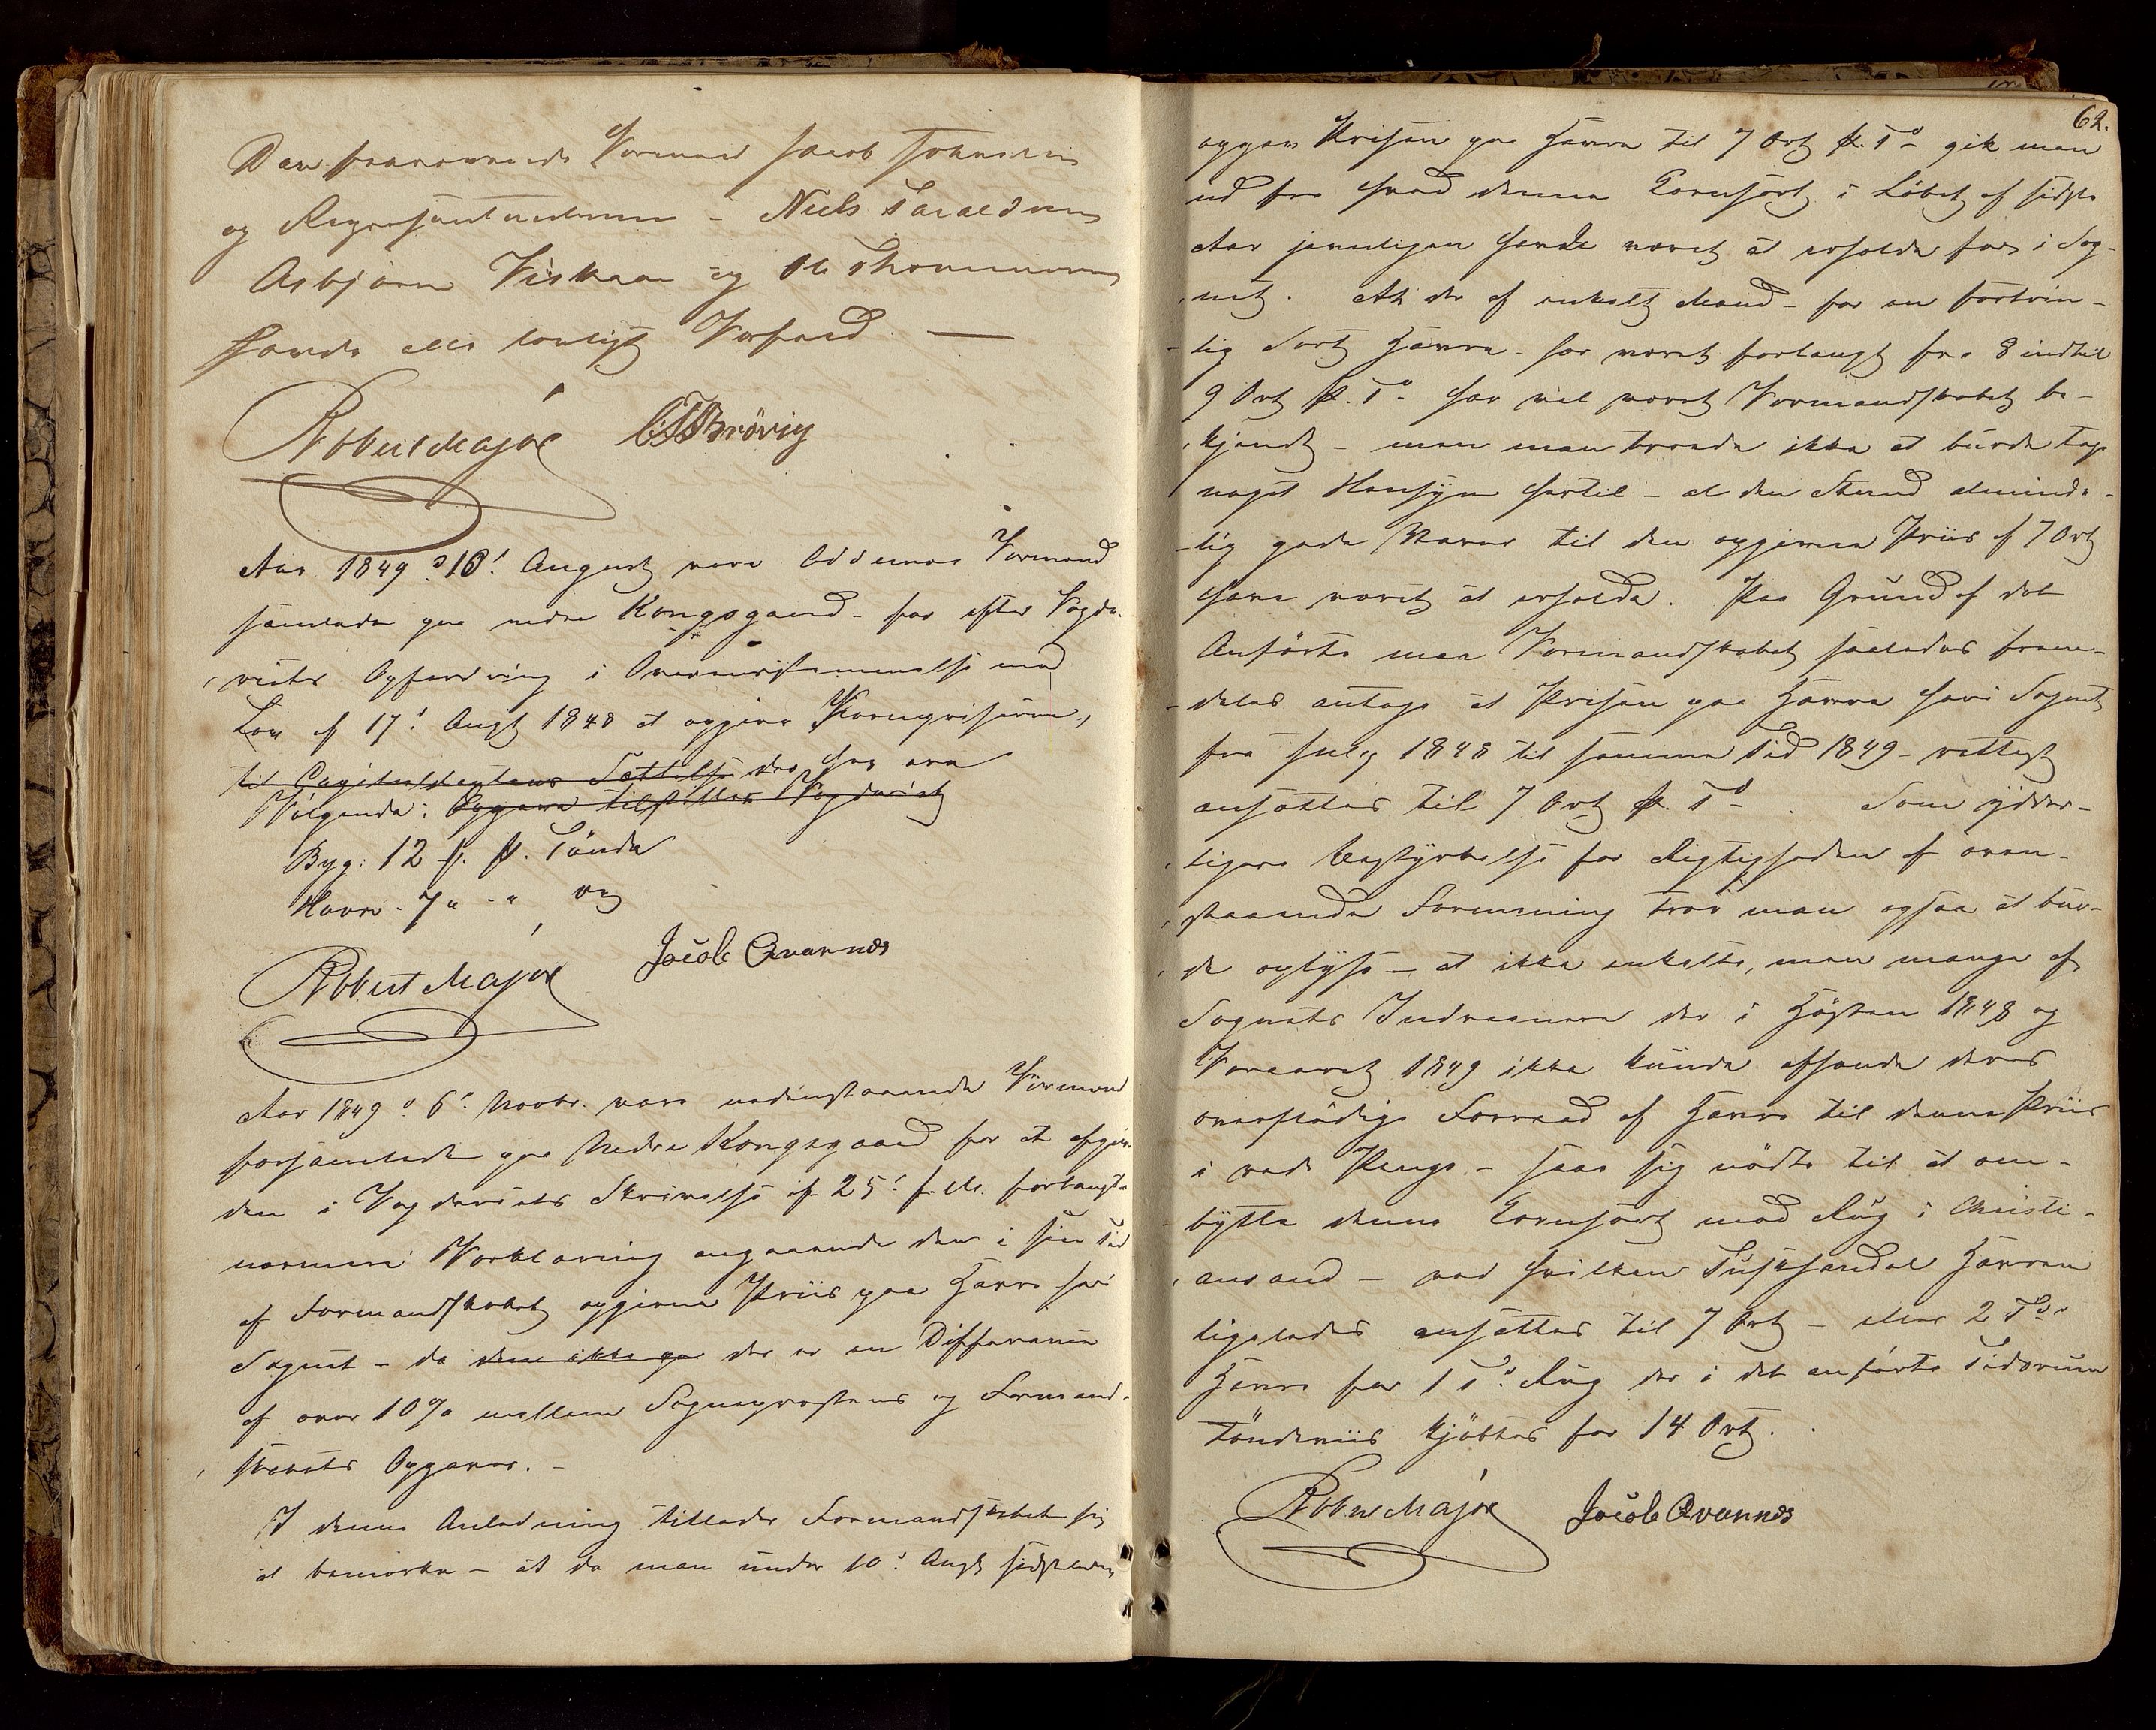 De fraværende Formænd Jacob Johnsen
og Repræsentanterne - Niels Taraldsen
Asbjörn Viskaar og Ole Thommesen
havde alle lovligt Forfald. —
Robert Major OTBrövig
Aar 1849 d 10' August vare Oddernes Formænd
samlede paa nedre Kongsgaard - for efter Fogde-
riets Opfordring i Overensstemmelse med
Lov af 17' Augt 1848 at opgive Kornpriserne,
til Capitelstaxtens Sættelse der her ere
Fölgende: Opgave tilstilles Fogderiet
Byg: 12 f. pr. Tönde
Havre - 7 " - " og
Robert Major Jacob Qvarnes
Aar 1849 d 6' Novbr. vare nedenstaaende Formænd
forsamlede paa Nedre Kongsgaard for at afgive
den i Fogderiets Skrivelse af 25' f. M. forlangte
nærmere Forklaring angaaende den i sin Tid
af Formandskabet opgivne Priis paa Havre her i
Sognet - da den ikke paa der er en Differance
af over 10% mellem Sognepræstens og Formand-
skabets Opgaver. -
I denne Anledning tillader Formandskabet sig
at bemærke - at da man under 10' Augt sidstleden
62.
opgav Prisen paa Havre til 7 Ort pr. Td gik man
ud fra hvad denne Kornsort i Löbet af sidste
Aar jevnligen havde været at erholde for i Sog-
net. At der af enkelt Mand - for en fortrin-
lig Sort Havre - har været forlangt fra 8 indtil
9 Ort pr. Td har vel været Formandskabet be-
kjendt - men man troede ikke at burde tage
noget Hensyn hertil - al den Stund alminde-
lig gode Varer til den opgivne Priis af 7 Ort
have været at erholde. Paa Grund af det
Anförte maa Formandskabet saaledes frem-
deles antage at Prisen paa Havre her i Sognet
fra July 1848 til samme Tid 1849 - rettest
ansættes til 7 Ort pr. Td. Som ydder-
ligere Bestyrkelse for Rigtigheden af oven-
staaende Formening tröe man ogsaa at bur-
de oplyse - at ikke enkelte, men mange af
Sognets Indvaanere der i Hösten 1848 og
Foraaret 1849 ikke kunde afhænde deres
overflödige Forraad af Havre til denne Priis
i rede Penge - saae sig nödte til at om-
bytte denne Kornsort med Rug i Christi-
ansand - ved hvilken Tuskhandel Havren
ligeledes ansattes til 7 Ort - eller 2 Tdr
Havre for 1 Td. Rug der i det anförte Tidsrum
töndeviis kjöbtes for 14 Ort.
Robert Major Jacob Qvarnes